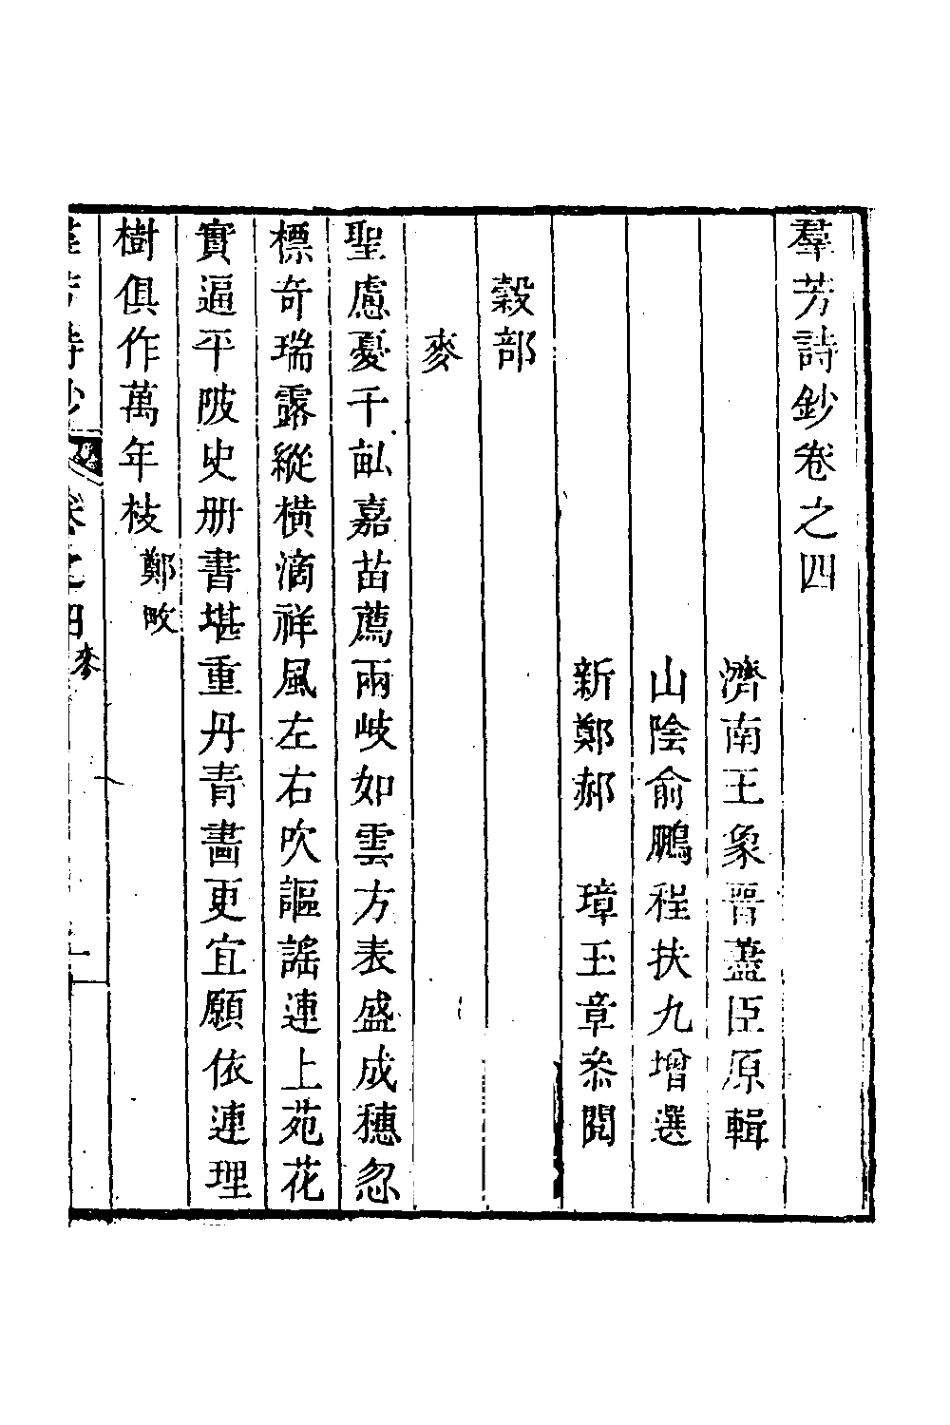 羣芳詩鈔卷之四
濟南王象晉藎臣原輯
山陰俞鵬程扶九增選
新鄭郝　璋玉章叅閱
穀部
麥
聖慮憂千畝嘉苗薦兩岐如雲方表盛成穗忽
標奇瑞露縱橫滴祥風左右吹謳謠連上苑花
實遍平陂史册書堪重丹青畵更宜願依連理
樹俱作萬年枝鄭畋
羣芳詩鈔　卷之四麥　一